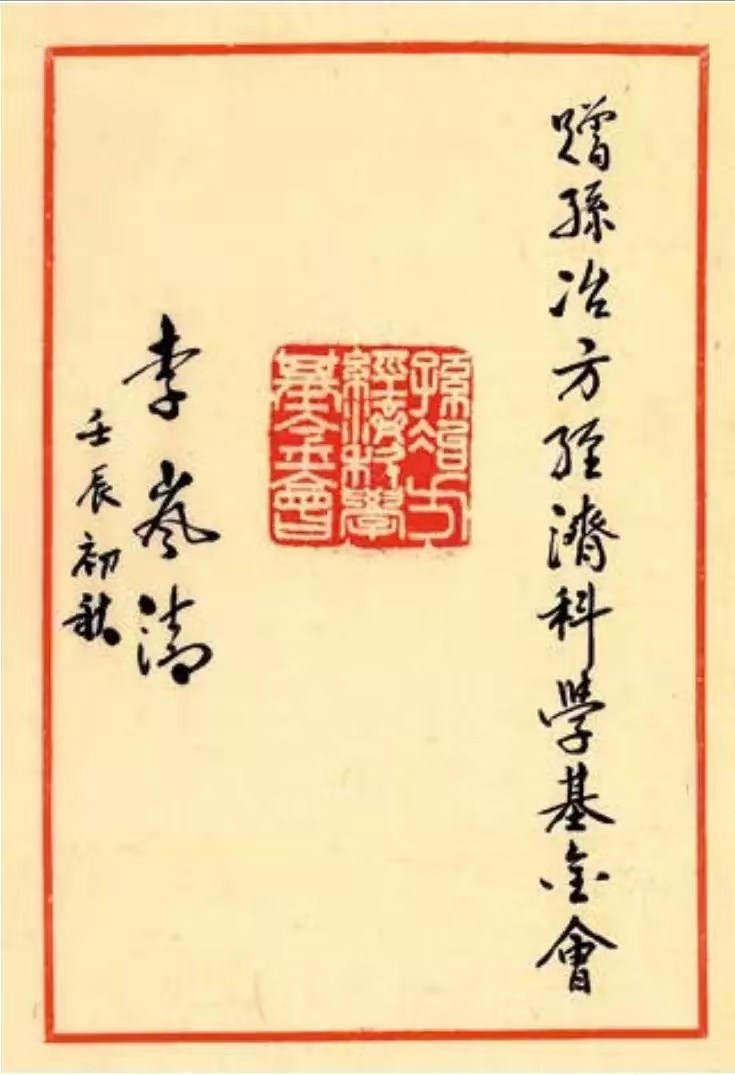 贈孫冶方經濟科學基金會
孫冶方
經濟科學
基金會
李嵐清
壬辰初秋